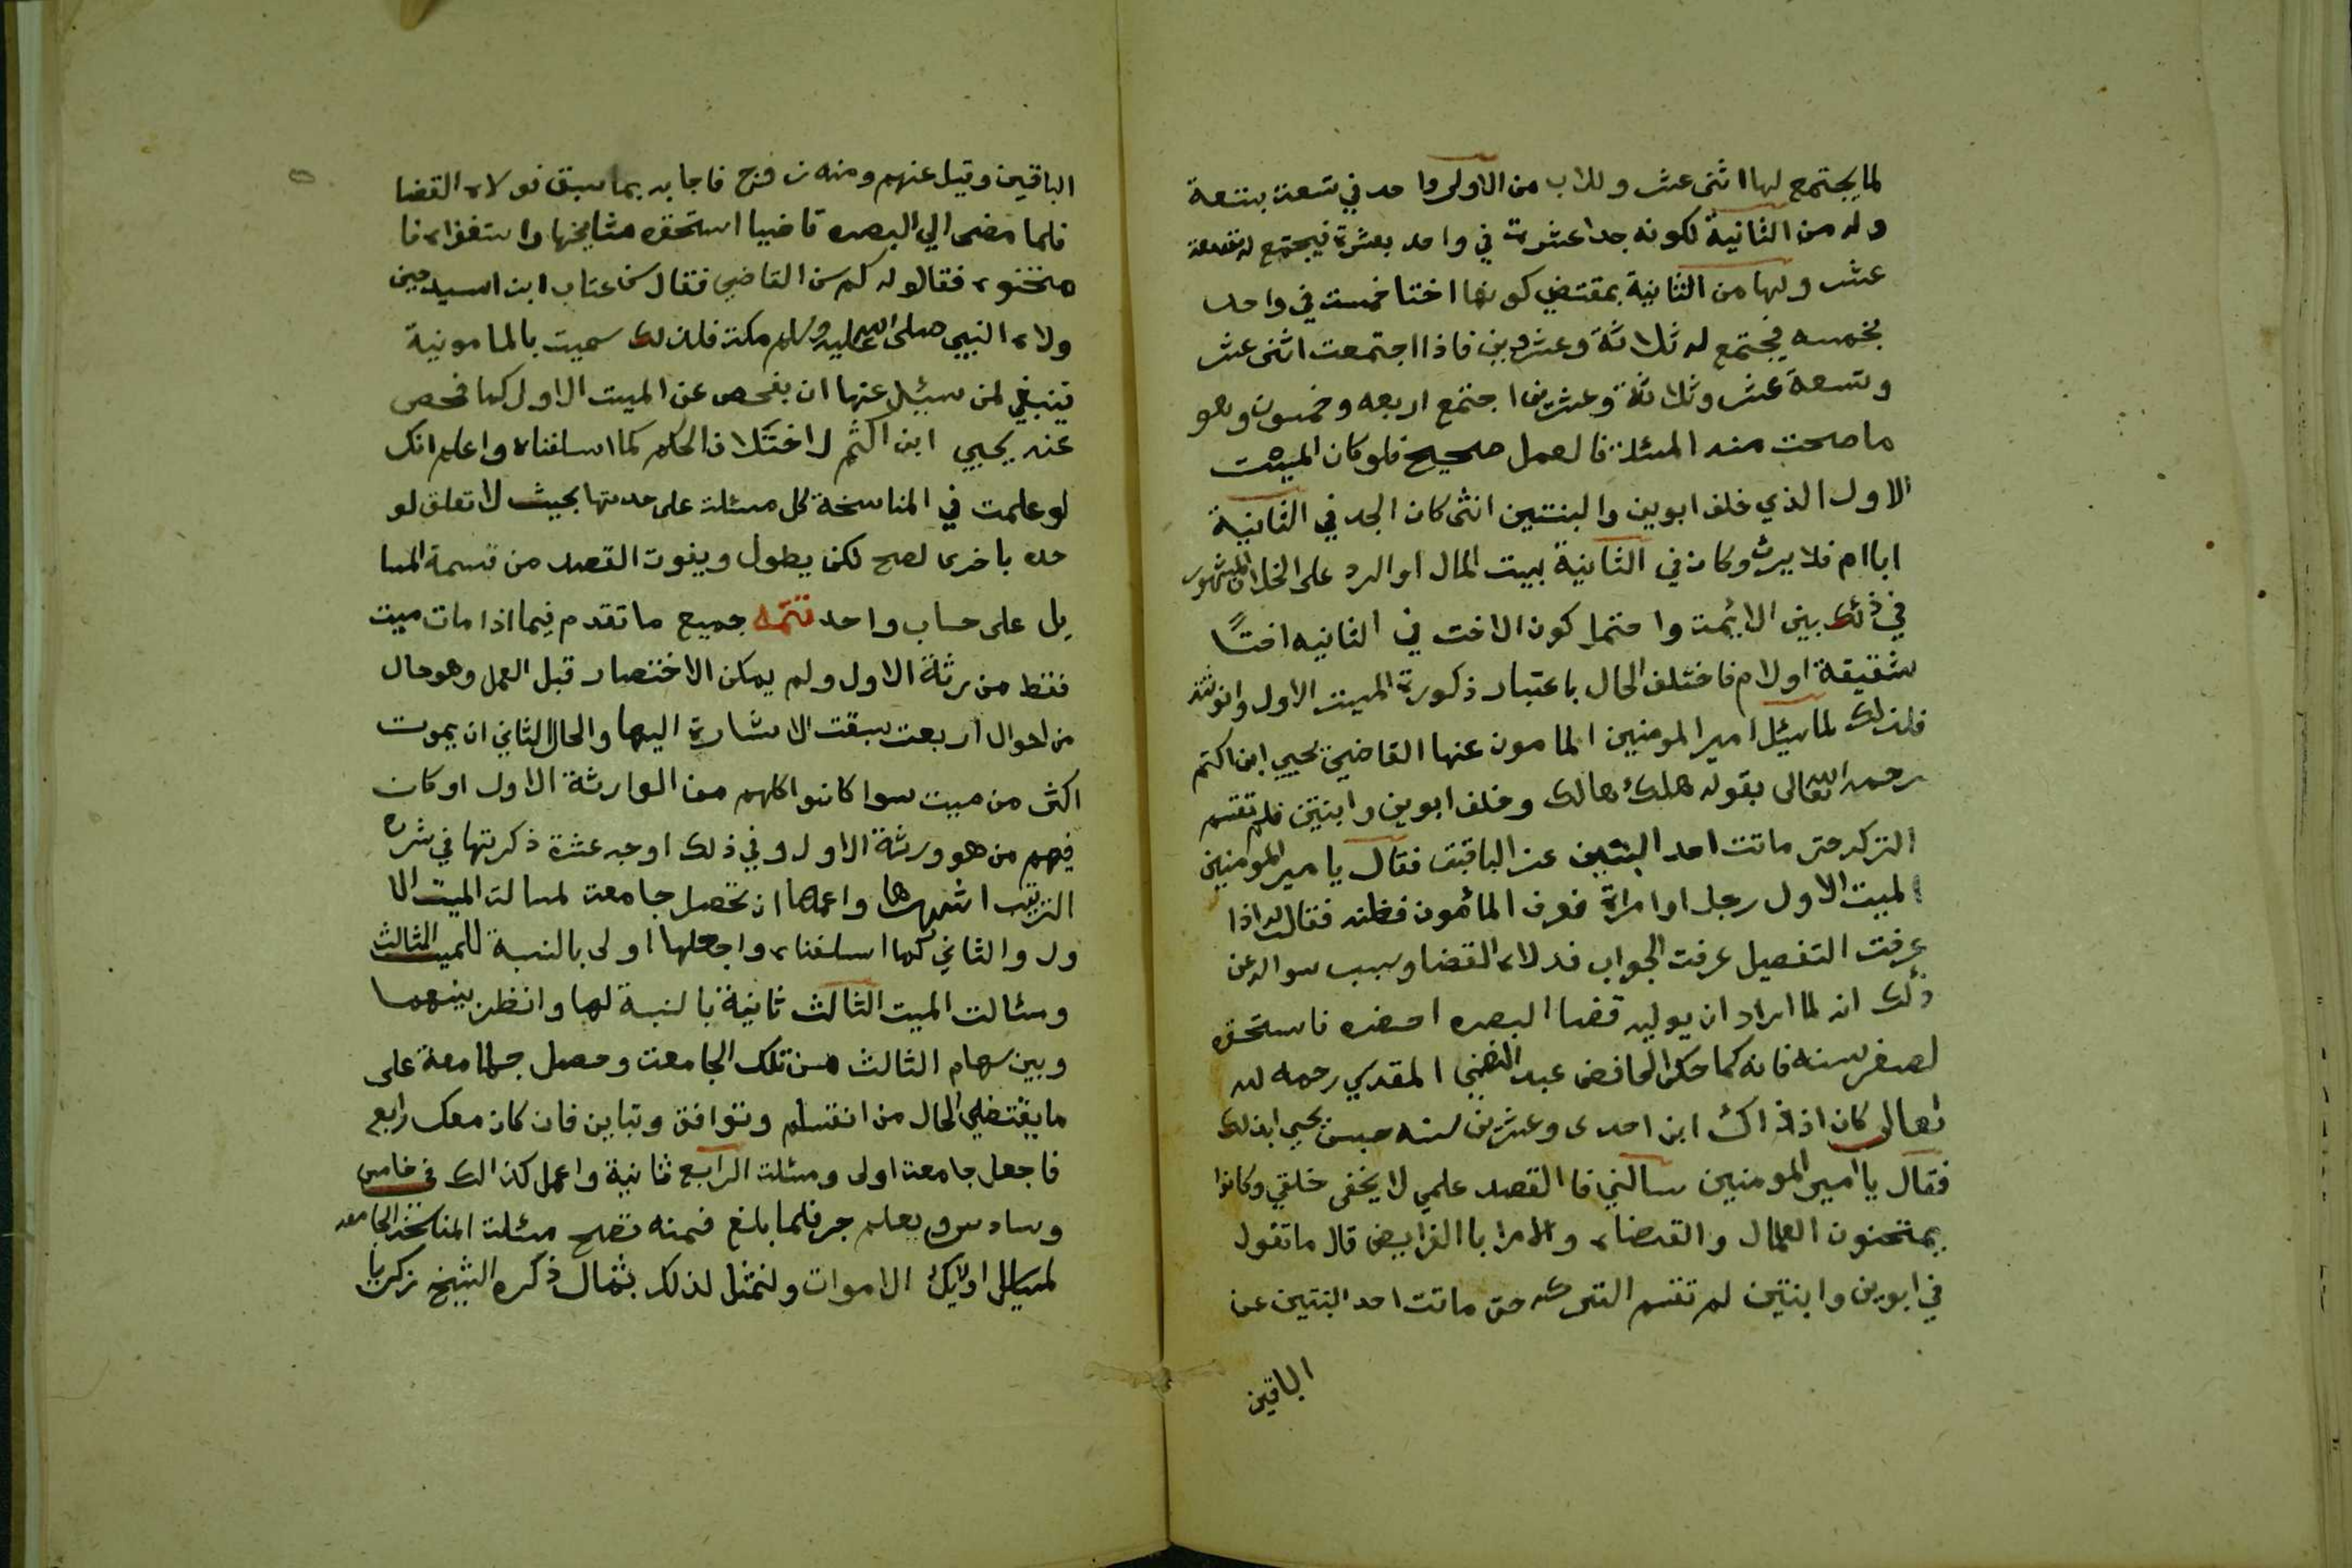 لما يجتمع لها اثنى عشر وللاب من الاولى واحد في تسعة بتسعة
وله من الثانية لكونه جدا عشرة في واحد بعشرة فيجتمع له تسعة
عشر ولها من الثانية بمقتضى كونها اختا خمسة في واحد
بخمسه فيجتمع له ثلاثة وعشرين فاذا اجتمعت اثنى عشر
وتسعة عشر وثلاثة وعشرين اجتمع اربعه وخمسون وهو
ما صحت منه المسئلة فالعمل صحيح فلو كان الميت
الاول الذي خلف ابوين والبنتين انثى كان الجد في الثانية
ابا ام فلا يرث وكان في الثانية بيت المال او الرد على الخلاف المشهور
في ذلك بين الائمة واحتمل كون الاخت في الثانيه اختًا
شقيقة او لام فاختلف الحال باعتبار ذكورة الميت الاول وانوثته
فلذلك لما سئل امير المومنين المامون عنها القاضي يحيي ابن اكثم
رحمه الله تعالى بقوله هلك هالك وخلف ابوين وابنتين فلم تقسم
التركه حتى ماتت احد البنتين عن الباقين فقال يا امير المومنين
الميت الاول رجل او امراة فعرف المأمون فطنته فقال له اذا
عرفت التفصيل عرفت الجواب فولاه القضا وسبب سواله عن
ذلك انه لما اراد ان يوليه قضا البصره احضره فاستحقره
لصغر سنه فانه كما حكى الحافض عبد الغني المقدسي رحمه الله
تعالى كان اذ ذاك ابن احدى وعشرين سنه يحيى لذلك
فقال يا امير المومنين سالني فا القصد علمي لا يخفى خلقي وكانوا
يمتحنون العمال والقضاه والامرا با الفرايض قال ما تقول
في ابوين وابنتين لم تقسم التركه حتى ماتت احد البنتين عن
الباقين
الباقين وقيل عنهم ومنه زوج فاجابه بما سبق فولاه القضا
فلما مضى الي البصره قاضيا استحقره مشايخها واستصغروه فا
متحنوه فقالو له كم سن القاضي فقال سن عتاب ابن اسيد حين
ولاه النبي صلى الله عليه وسلم مكة فلذلك سميت بالمامونية
فينبغي لمن سئل عنها ان يفحص عن الميت الاول كما فحص
عنه يحيي ابن اكثم لاختلاف الحكم كما اسلفناه واعلم انك
لو علمت في المناسخة كل مسئلة على حدتها بحيث لا تعلق لو
حده باخرى لصح لكن يطول ويفوت القصد من قسمة المسا
يل على حساب واحد تتمة جميع ما تقدم فيما اذا مات ميت
فقط من رثة الاول ولم يمكن الاختصار قبل العمل وهو حال
من احوال اربعة سبقت الاشارة اليها والحال الثاني ان يموت
اكثر من ميت سوا كانوا كلهم من الوارثة الاول او كان
فيهم من هو ورثة الاول وفي ذلك اوجه عشرة ذكرتها في شرح
الترتيب اشهرها واعمها ان تحصل جامعة لمسالة الميت الا
ول والثاني كما اسلفناه واجعلها اولى بالنسبة للميت الثالث
ومسئالة الميت الثالث ثانية بالنسبة لها وانظر بينهما
وبين سهام الثالث من تلك الجامعة وحصل جامعة على
ما يقتضي الحال من انقسام وتوافق وتباين فان كان معك رابع
فاجعل جامعة اولى ومسئلة الرابع ثانية واعمل كذالك في خامس
وسادس وهلم جر فلما بلغ فمنه تصح مسئلة المناسخة الجامعه
لمسايل اولايك الاموات ولنمثل لذلك بمثال ذكره الشيخ زكريا